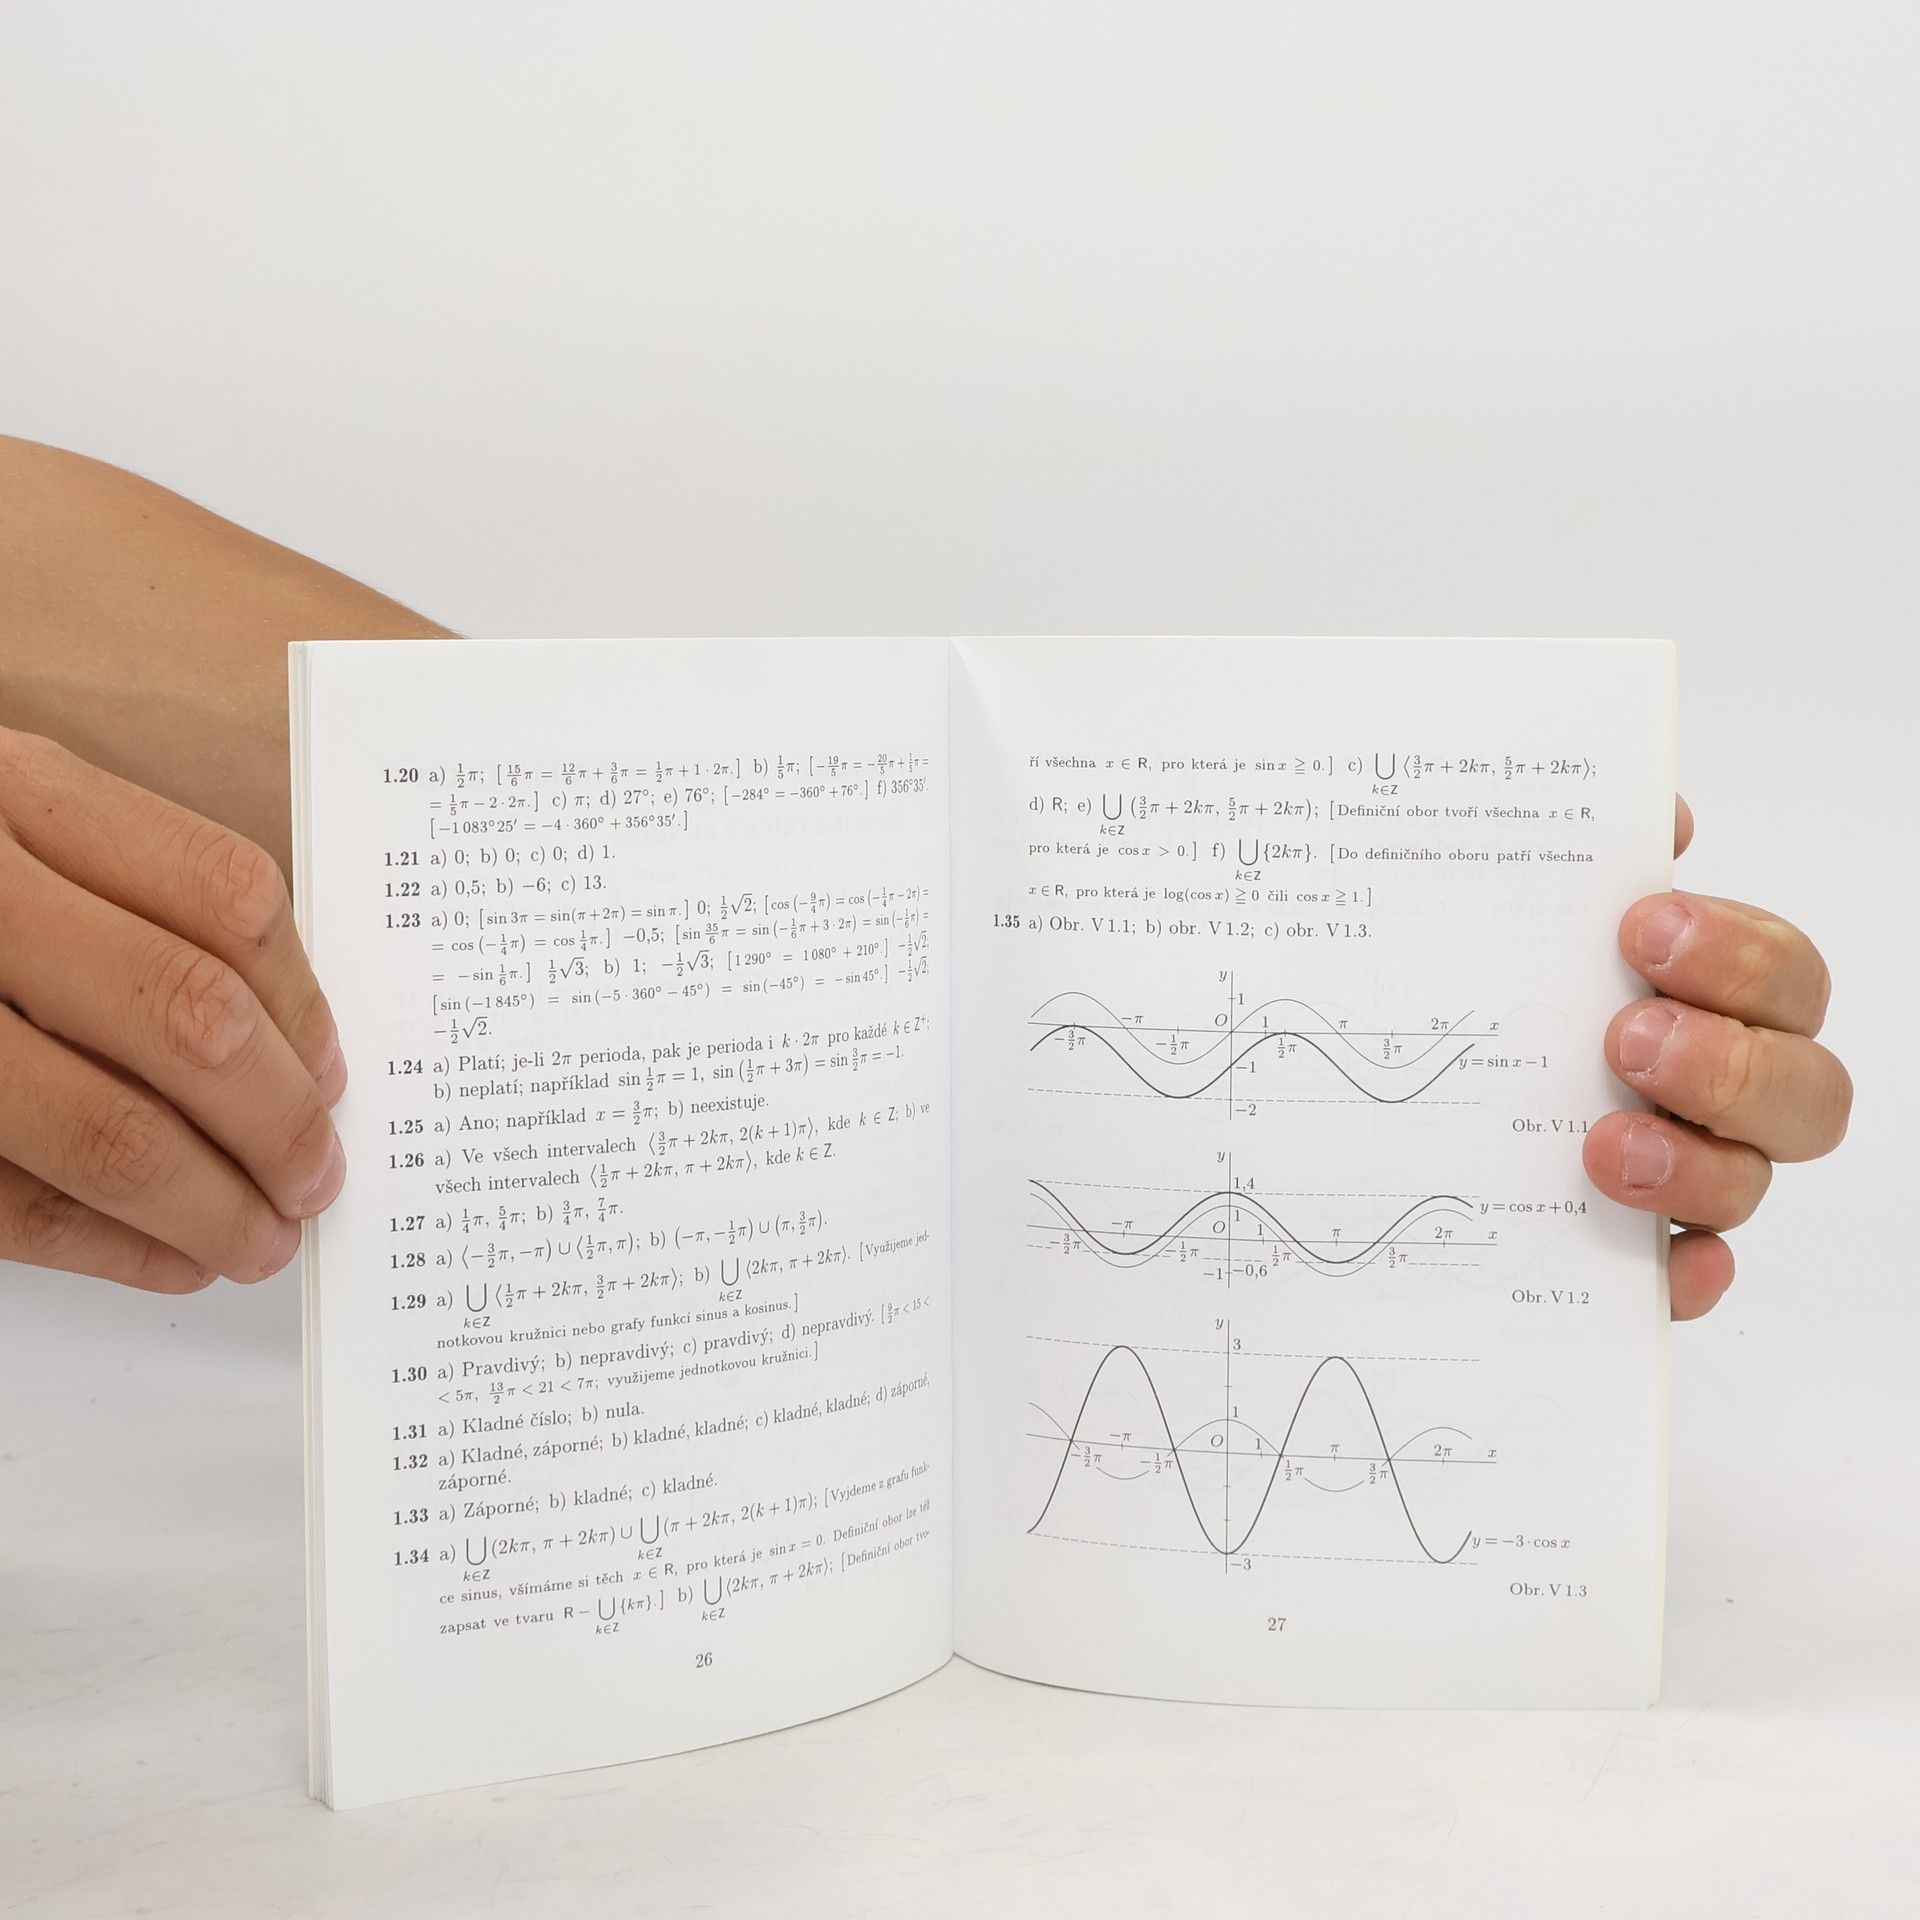 1.20 a) ½π; [15/6π = 12/6π + 3/6π = ½π + 1 · 2π.] b) ⅕π; [−19/5π = −20/5π + ⅕π =
= ⅕π − 2 · 2π.] c) π; d) 27°; e) 76°; [−284° = −360° + 76°.] f) 356°35′.
[−1 083°25′ = −4 · 360° + 356°35′.]
1.21 a) 0; b) 0; c) 0; d) 1.
1.22 a) 0,5; b) −6; c) 13.
1.23 a) 0; [sin 3π = sin(π + 2π) = sin π.] 0; ½√2; [cos (−9/4π) = cos (−¼π − 2π) =
= cos (−¼π) = cos ¼π.] −0,5; [sin 35/6π = sin (−⅙π + 3 · 2π) = sin (−⅙π) =
= − sin ⅙π.] ½√3; b) 1; −½√3; [1 290° = 1 080° + 210°.] −½√2;
[sin (−1 845°) = sin (−5 · 360° − 45°) = sin (−45°) = − sin 45°.] −½√2;
−½√2.
1.24 a) Platí; je-li 2π perioda, pak je perioda i k · 2π pro každé k ∈ Z⁺;
b) neplatí; například sin ½π = 1, sin (½π + 3π) = sin 3/2π = −1.
1.25 a) Ano; například x = 3/2π; b) neexistuje.
1.26 a) Ve všech intervalech ⟨3/2π + 2kπ, 2(k + 1)π⟩, kde k ∈ Z; b) ve
všech intervalech ⟨½π + 2kπ, π + 2kπ⟩, kde k ∈ Z.
1.27 a) ¼π, 5/4π; b) ¾π, 7/4π.
1.28 a) ⟨−3/2π, −π) ∪ ⟨½π, π); b) (−π, −½π) ∪ (π, 3/2π).
1.29 a) ⋃ ⟨½π + 2kπ, 3/2π + 2kπ⟩; b) ⋃ ⟨2kπ, π + 2kπ⟩. [Využijeme jed-
k∈Z k∈Z
notkovou kružnici nebo grafy funkcí sinus a kosinus.]
1.30 a) Pravdivý; b) nepravdivý; c) pravdivý; d) nepravdivý. [9/2π < 15 <
< 5π, 13/2π < 21 < 7π; využijeme jednotkovou kružnici.]
1.31 a) Kladné číslo; b) nula.
1.32 a) Kladné, záporné; b) kladné, kladné; c) kladné, kladné; d) záporné,
záporné.
1.33 a) Záporné; b) kladné; c) kladné.
1.34 a) ⋃ (2kπ, π + 2kπ) ∪ ⋃ (π + 2kπ, 2(k + 1)π); [Vyjdeme z grafu funk-
k∈Z k∈Z
ce sinus, všímáme si těch x ∈ R, pro která je sin x = 0. Definiční obor lze též
zapsat ve tvaru R − ⋃ {kπ}.] b) ⋃ ⟨2kπ, π + 2kπ⟩; [Definiční obor tvo-
k∈Z k∈Z
26
ří všechna x ∈ R, pro která je sin x ≧ 0.] c) ⋃ ⟨3/2π + 2kπ, 5/2π + 2kπ⟩;
k∈Z
d) R; e) ⋃ (3/2π + 2kπ, 5/2π + 2kπ); [Definiční obor tvoří všechna x ∈ R,
k∈Z
pro která je cos x > 0.] f) ⋃ {2kπ}. [Do definičního oboru patří všechna
k∈Z
x ∈ R, pro která je log(cos x) ≧ 0 čili cos x ≧ 1.]
1.35 a) Obr. V 1.1; b) obr. V 1.2; c) obr. V 1.3.
y
1
−π O 1 π 2π x
−3/2π −½π ½π 3/2π
−1
y = sin x − 1
−2
Obr. V 1.1
y
1,4
1
y = cos x + 0,4
−π O 1 π 2π x
−3/2π −½π ½π 3/2π
−1 −0,6
Obr. V 1.2
y
3
1
−π O 1 π 2π x
−3/2π −½π ½π 3/2π
y = −3 · cos x
−3
Obr. V 1.3
27